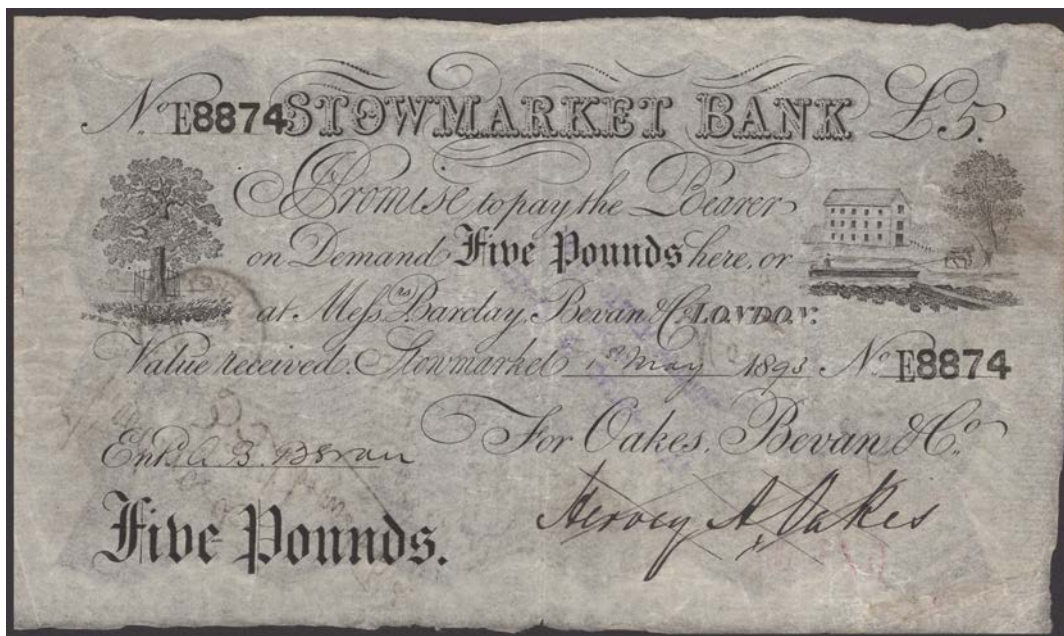 No. E8874 STOWMARKET BANK £5.
I Promise to pay the Bearer
on Demand Five Pounds here, or
at Messrs. Barclay, Bevan & Co. LONDON.
Value received. Stowmarket 1st May 1893 No. E8874
For Oakes, Bevan, & Co.
Entd. A. B. Bevan
Five Pounds.
Hervey A. Oakes